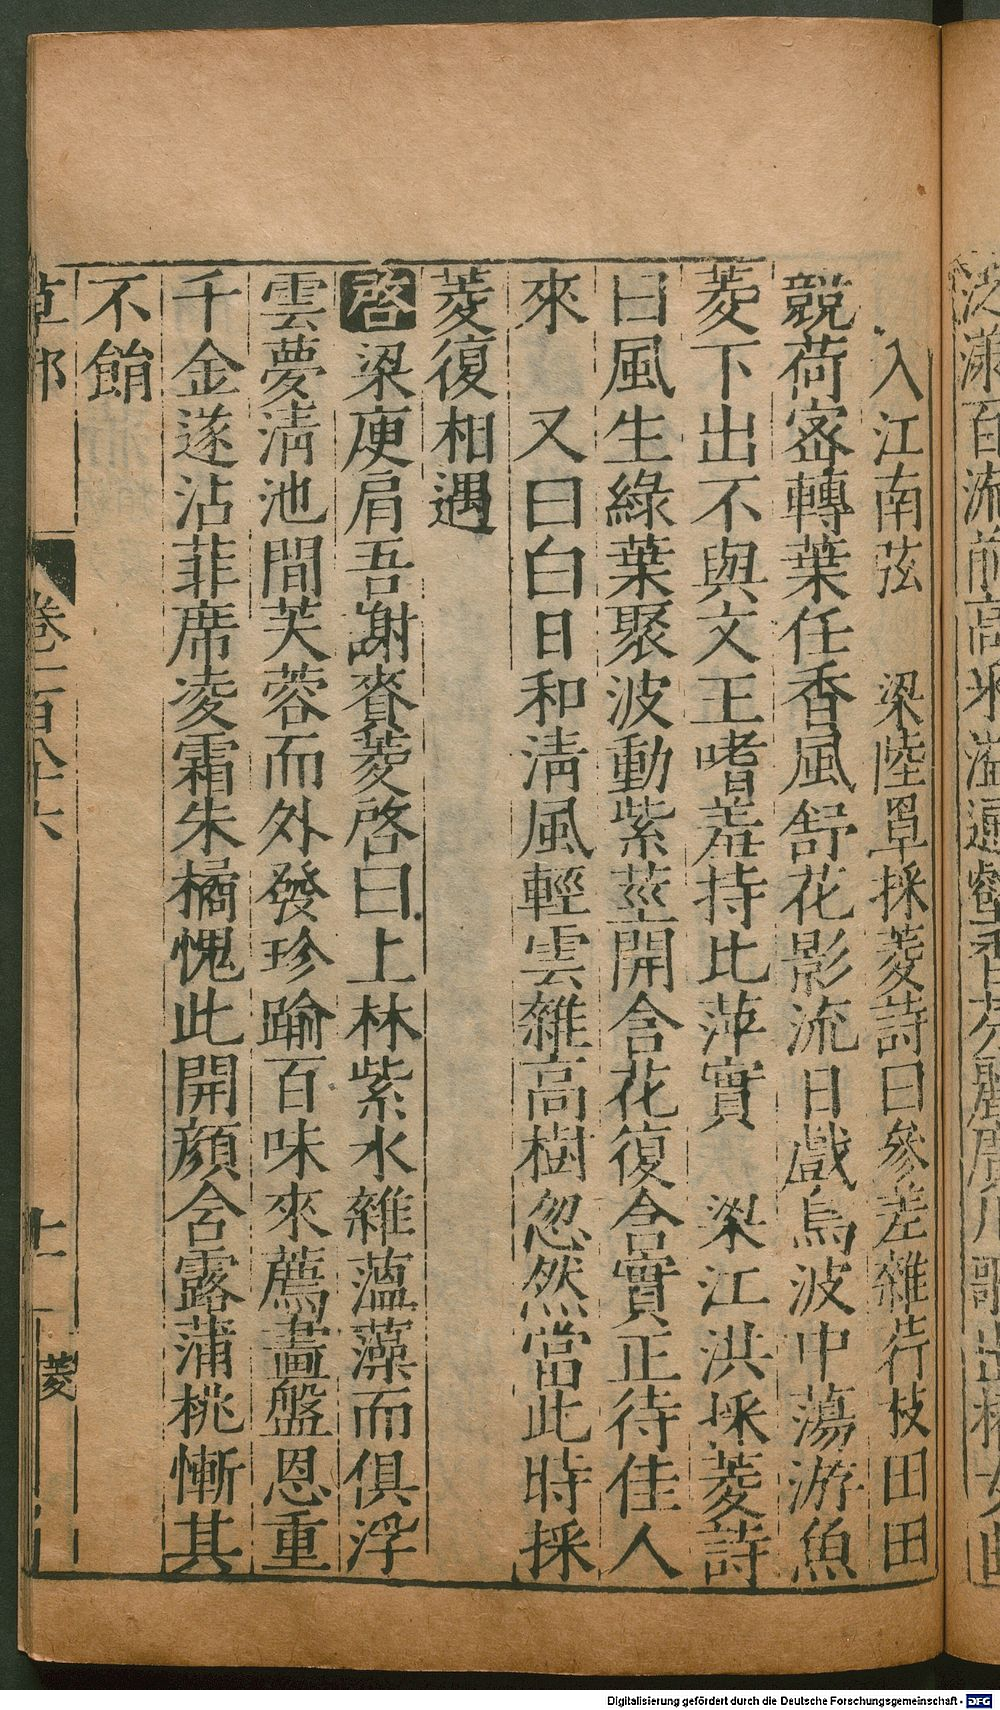 入江南弦　梁陸罩採菱詩曰參差雜荇枝田田
競荷密轉葉任香風舒花影流日戲鳥波中蕩游魚
菱下出不與文王嗜羞持比萍實　梁江洪採菱詩
曰風生綠葉聚波動紫莖開含花復含實正待佳人
來　又曰白日和清風輕雲雜高樹忽然當此時採
菱復相遇
啓梁庾肩吾謝賚菱啓曰上林紫水雜薀藻而俱浮
雲夢清池間芙蓉而外發珍踰百味來薦畫盤恩重
千金遂沾菲席凌霜朱橘愧此開顏含露蒲桃慚其
不餡
草部　卷一百八十六　十一　菱
Digitalisierung gefördert durch die Deutsche Forschungsgemeinschaft - DFG